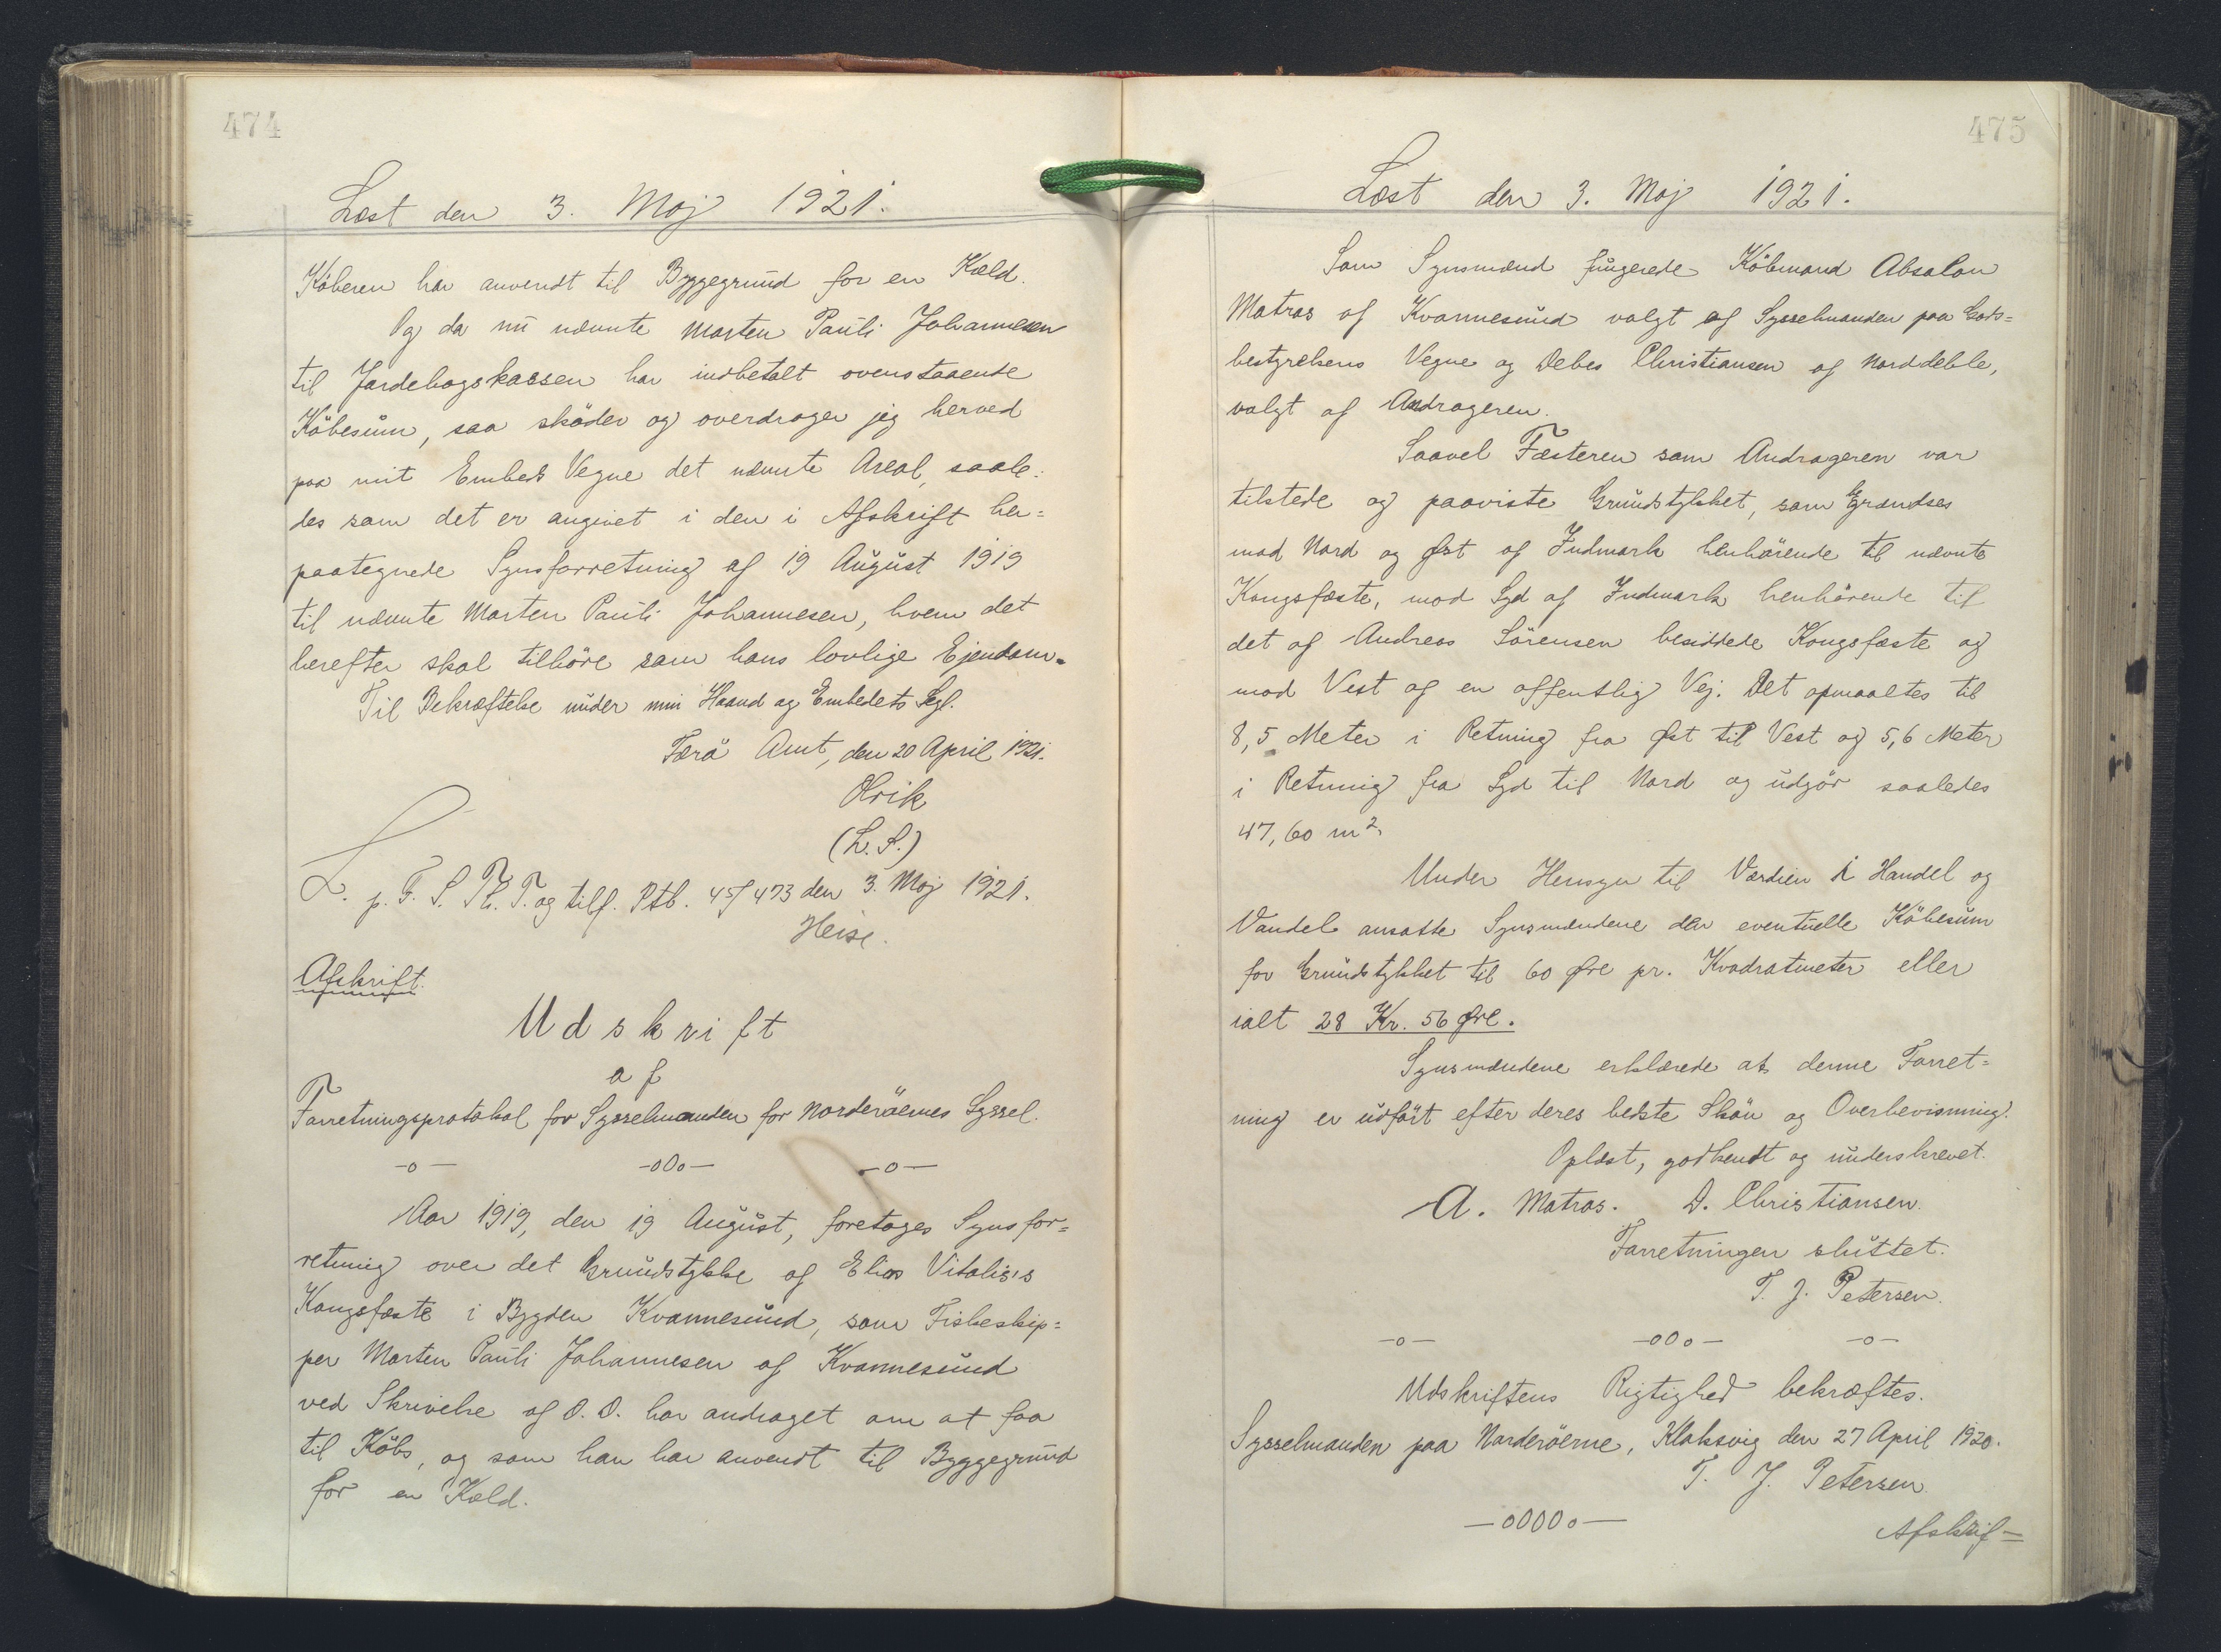 474
Læst den 3. Maj 1921.
Köberen har anvendt til Byggegrund for en Kæld.
Og da nu nævnte Morten Pauli Johannesen
til Jordebogskassen har indbetalt ovenstaaende
Köbesum, saa sköder og overdrager jeg herved
paa mit Embeds Vegne det nævnte Areal, saale-
des som det er angivet i den i Afskrift her=
paategnede Synsforretning af 19 August 1919
til nævnte Morten Pauli Johannesen, hvem det
herefter skal tilhöre som hans lovlige Ejendom.
Til Bekræftelse under min Haand og Embedets Segl.
Færö Amt, den 20 April 1921.
Olrik
(L. S.)
L. p. F. S. Th. T. og tilf. Ptb. 45/473 den 3. Maj 1921.
Heise.
Afskrift.
Udskrift
af
Forretningsprotokol for Sysselmanden for Norderöernes Syssel.
—o— —o0o— —o—
Aar 1919, den 19 August, foretoges Synsfor=
retning over det Grundstykke af Elias Vitalis's
Kongsfæste i Bygden Kvannesund, som Fiskeskip=
per Morten Pauli Johannesen af Kvannesund
ved Skrivelse af D. D. har andraget om at faa
til Köbs, og som han har anvendt til Byggegrund
for en Kæld.
475
Læst den 3. Maj 1921.
Som Synsmænd fungerede Köbmand Absalon
Matras af Kvannesund valgt af Sysselmanden paa Gods=
bestyrelsens Vegne og Debes Christiansen af Norddeble,
valgt af Andrageren.
Saavel Fæsteren som Andrageren var
tilstede og paaviste Grundstykket, som Grændses
mod Nord og Øst af Indmark henhörende til nævnte
Kongsfæste, mod Syd af Indmark henhörende til
det af Andreas Sörensen besiddede Kongsfæste og
mod Vest af en offentlig Vej. Det opmaaltes til
8,5 Meter i Retning fra Øst til Vest og 5,6 Meter
i Retning fra Syd til Nord og udgör saaledes
47,60 m²
Under Hensyn til Værdien i Handel og
Vandel ansatte Synsmændene den eventuelle Köbesum
for Grundstykket til 60 Øre pr. Kvadratmeter eller
ialt 28 Kr. 56 Øre.
Synsmændene erklærede at denne Forret=
ning er udfört efter deres bedste Skön og Overbevisning.
Oplæst, godkendt og underskrevet.
A. Matras. D. Christiansen.
Forretningen sluttet.
T. J. Petersen.
—o— —o0o— —o—
Udskriftens Rigtighed bekræftes.
Sysselmanden paa Norderöerne, Klaksvig den 27 April 1920.
T. J. Petersen
—o000o—
Afskrif=